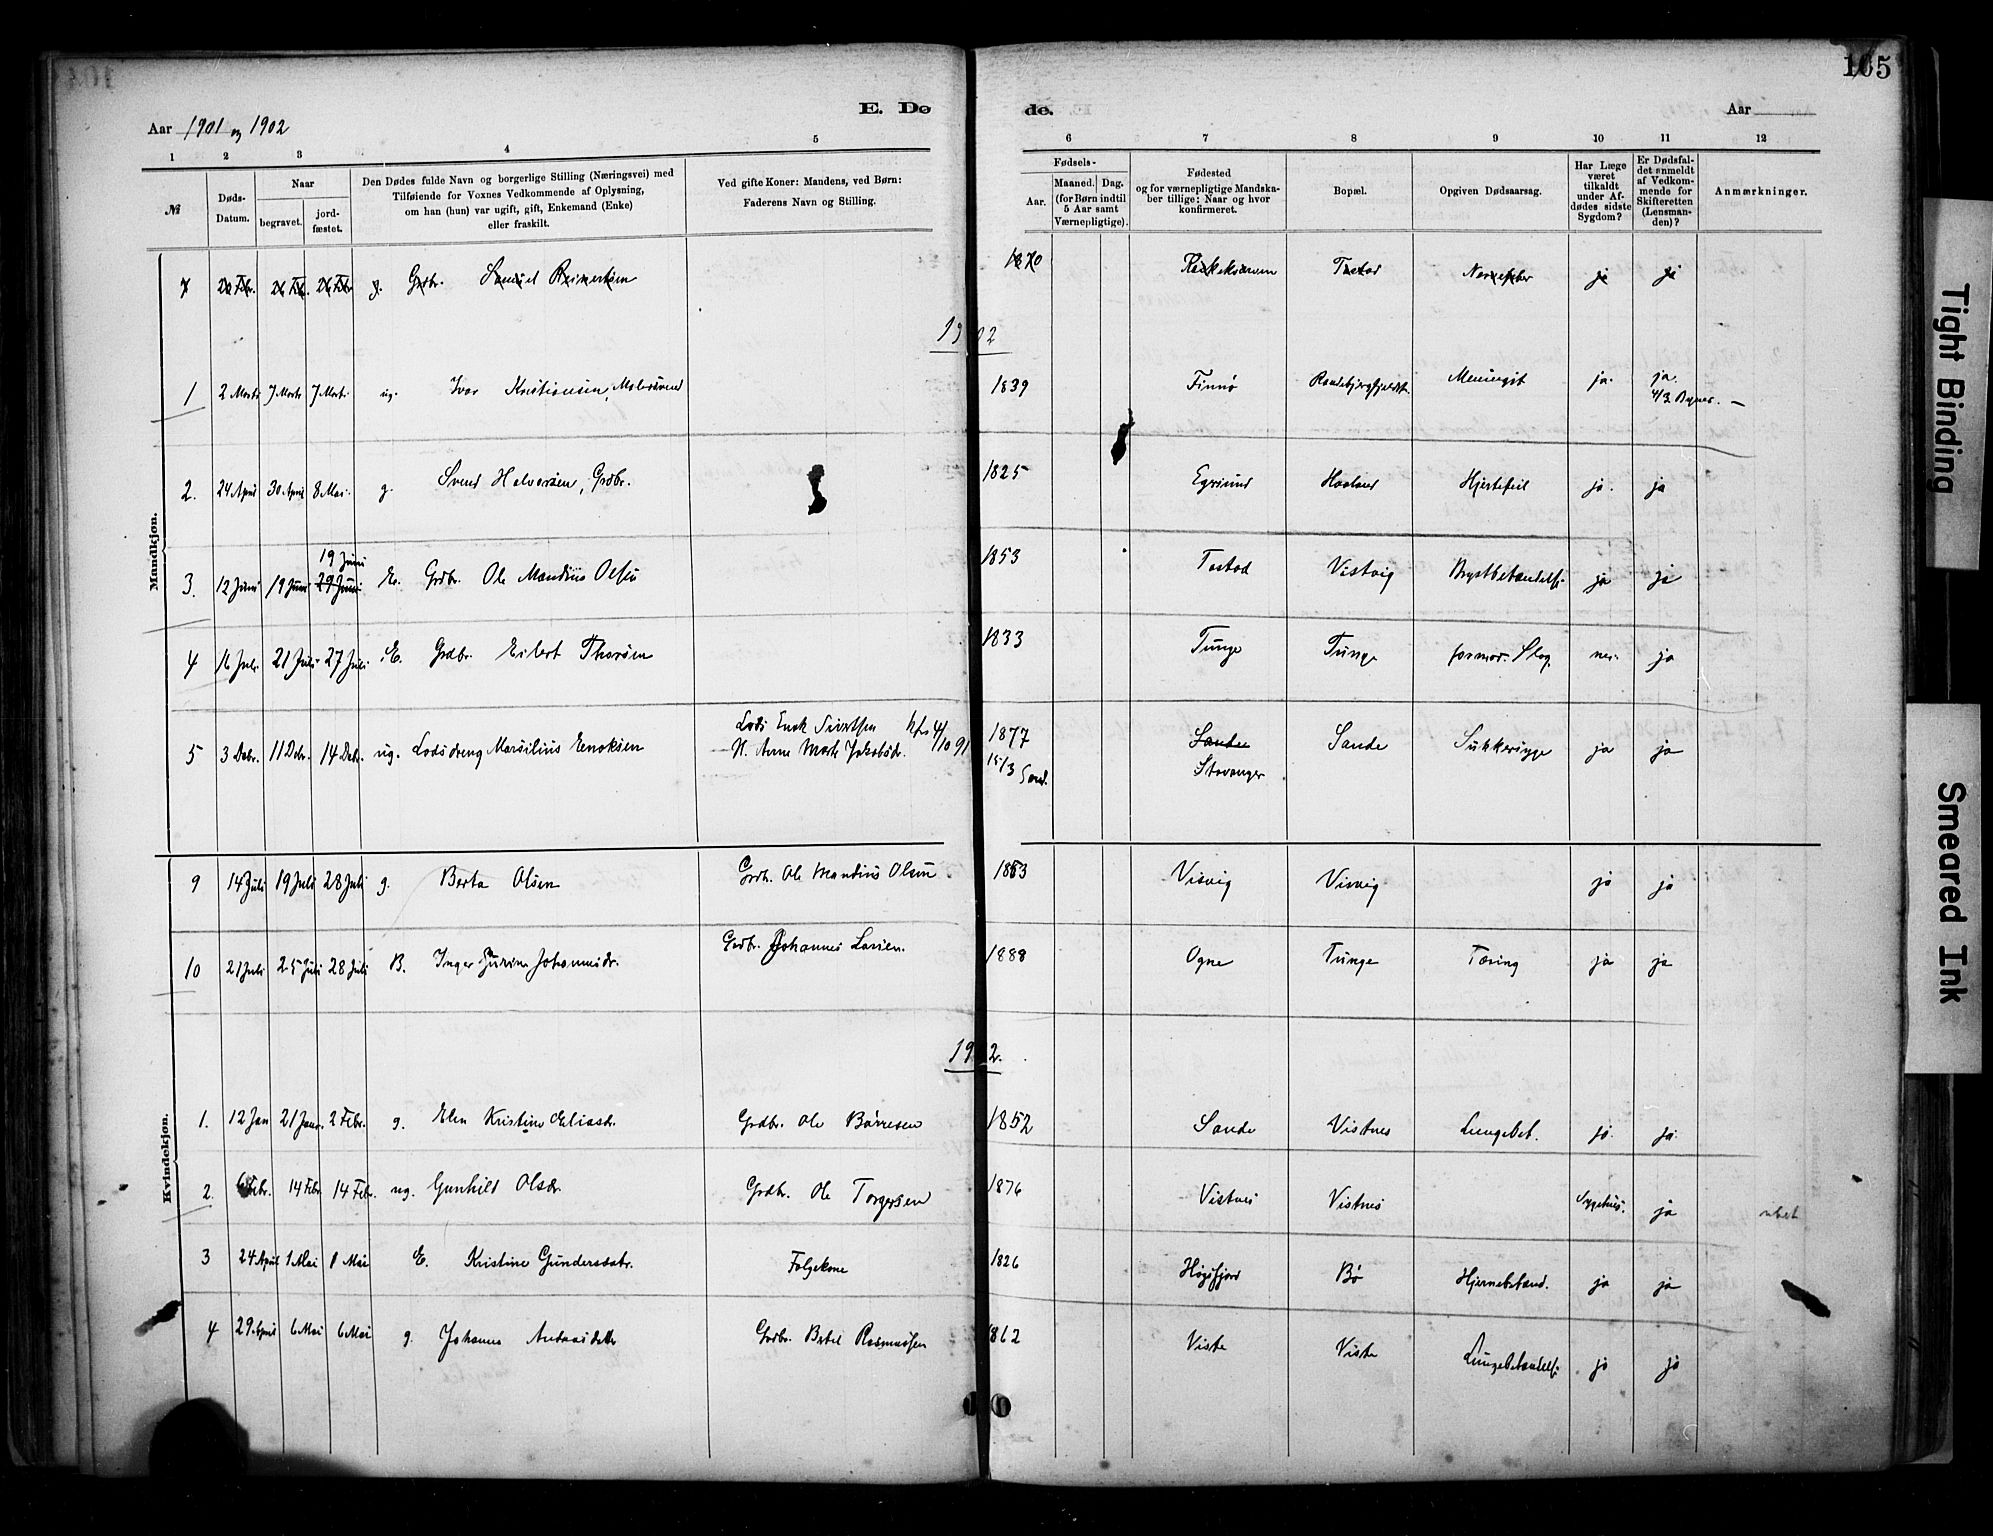 105
E. Dø de.
Aar 1901 og 1902
Aar
1 2 3 4 5 6 7 8 9 10 11 12
№
Døds-
Datum.
Naar
begravet.
jord-
fæstet.
Den Dødes fulde Navn og borgerlige Stilling (Næringsvei) med
Tilføiende for Voxnes Vedkommende af Oplysning,
om han (hun) var ugift, gift, Enkemand (Enke)
eller fraskilt.
Ved gifte Koner: Mandens, ved Børn:
Faderens Navn og Stilling.
Fødsels-
Aar.
Maaned. Dag.
(for Børn indtil
5 Aar samt
Værnepligtige).
Fødested
og for værnepligtige Mandska-
ber tillige: Naar og hvor
konfirmeret.
Bopæl.
Opgiven Dødsaarsag.
Har Læge
været
tilkaldt
under Af-
dødes sidste
Sygdom?
Er Dødsfal-
det anmeldt
af Vedkom-
mende for
Skifteretten
(Lensman-
den)?
Anmærkninger.
Mandkjøn.
7 20 Feb. 26 Feb. 26 Feb. g. Grdbr. Samuel Reimertsen 1870 Tastad ja ja
1902
1 2 Marts 7 Marts 7 Marts ug. Ivar Kristiansen, Malersvend 1839 Finnø Meningit ja. ja.
4/3
2. 24 April 30 April 8 Mai. g. Svend Halvorsen, Grdbr. 1825 Egersund Haaland Hjertefeil ja. ja
19 Juni
3. 12 Juni 19 Juni 29 Juni E. Grdbr. Ole Mandius Olsen 1853 Tastad Vistvig Brystbetændelse ja ja
4 16 Juli 21 Juli 27 Juli E. Grdbr. Eilert Thorsen 1833 Tunge Tunge formod. Slag nei. ja
5 3 Debr. 11 Debr. 14 Debr. ug. Lodsdreng Marsilius Enoksen Lods Enok Sivertsen kfs 4/10 91 1877 Sande Sande Sukkersyge ja ja
H. Anne Marte Jakobsdr. 15/3 Sand. Stavanger
Kvindekjøn.
9 14 Juli 19 Juli 28 Juli g. Berta Olsen Grdb. Ole Mandius Olsen 1863 Visvig Visvig ja ja
10 21 Juli 25 Juli 28 Juli B. Inger Johannesdr. Grdbr. Johannes Larsen. 1888 Ogne Tunge Tæring ja ja
1902.
1. 12 Jan 21 Janr. 2 Febr. g. Elen Kristine Eliasdr. Grdbr. Ole Børresen 1852 Sande Vistnes Lungebet. ja. ja.
2. 6 Febr. 14 Febr. 14 Febr. ug. Gunhild Olsdr. Grdbr. Ole Torgersen 1876 Vistnes Vistnes Sygehus. ja
3 24 April 1 Mai 8 Mai E. Kristine Gundersdatr. Folgekone 1826 Høgsfjord Bø Hjernebetænd. ja ja
4 29 April 6 Mai 6 Mai g. Johanna Andreasdatter Grdbr. Bertil Rasmussen 1862 Viste Viste Lungebetændelse ja ja
Tight Binding
Smeared Ink